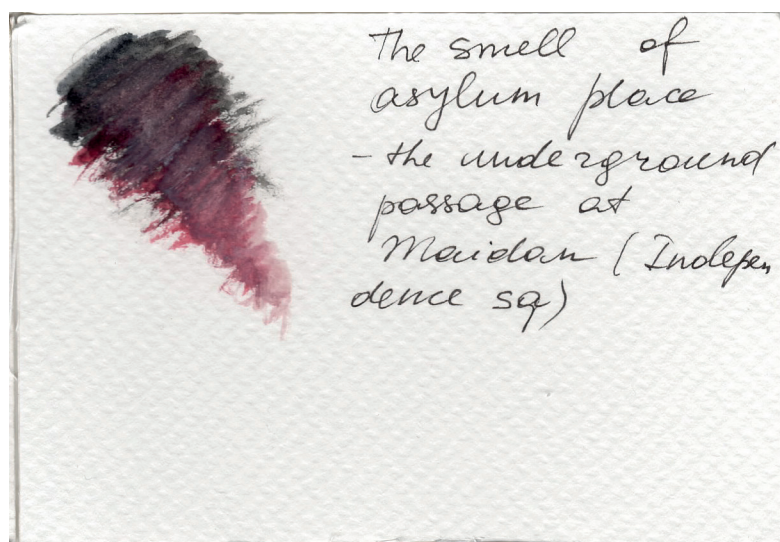 The smell of
asylum place
- the underground
passage at
Maidan (Indepen
dence sq)